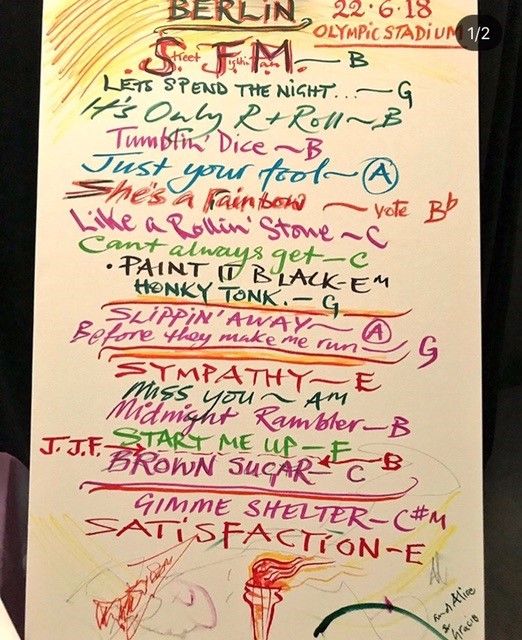 BERLIN 22·6·18
OLYMPIC STADIUM
1/2
Street Fightin Man
S. F. M. ~ B
LETS SPEND THE NIGHT... ~ G
It's Only R + Roll ~ B
Tumblin' Dice ~ B
Just your fool ~ A
She's a Rainbow ~ vote Bb
Like a Rollin' Stone ~ C
Cant always get ~ C
· PAINT IT BLACK - EM
HONKY TONK. - G
SLIPPIN' AWAY ~ A
Before they make me run ~ G
SYMPATHY ~ E
MISS YOU ~ AM
Midnight Rambler - B
START ME UP - F
J. J. F. → B
BROWN SUGAR - C
GIMME SHELTER - C#M
SATISFACTION - E
Alice